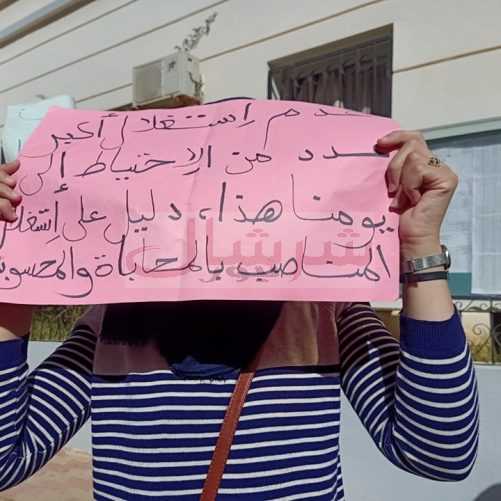 عدم إستغلال أكبر
عدد من الإحتياط الى
يومنا هذا، دليل على إستغلال
المناصب بالمحاباة والمحسوبية
شرشال
نيوز